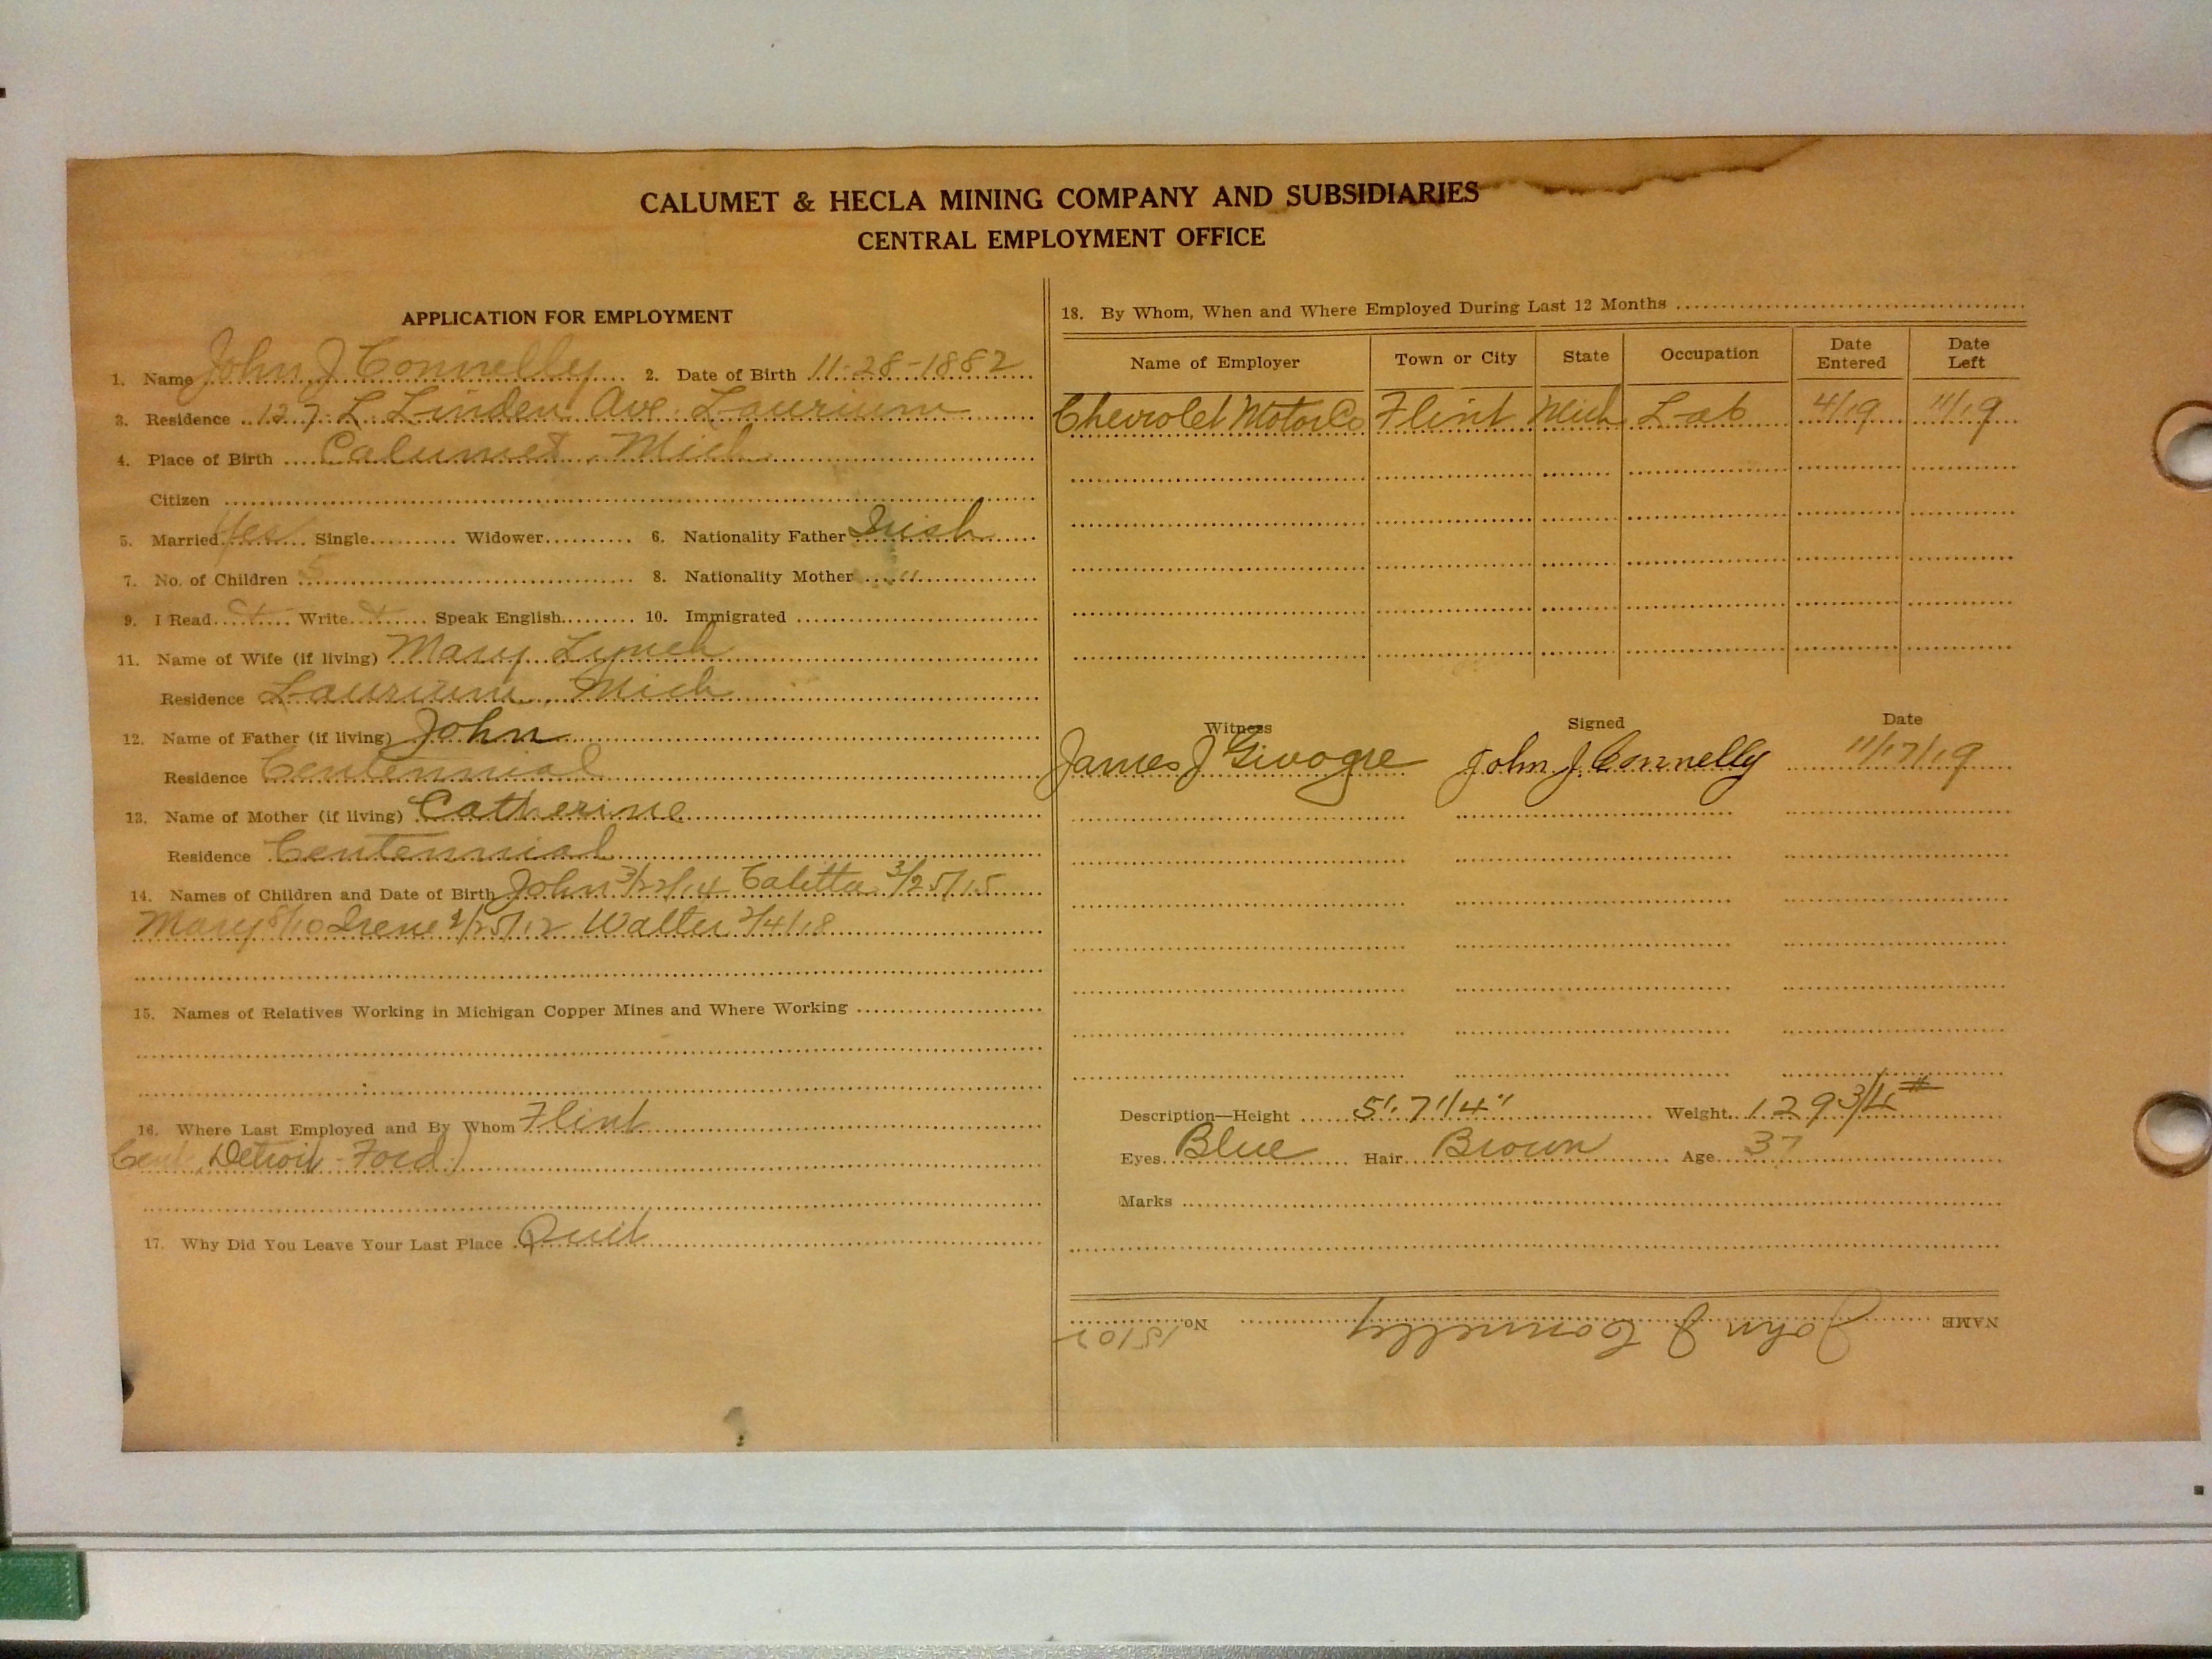 CALUMET & HECLA MINING COMPANY AND SUBSIDIARIES
CENTRAL EMPLOYMENT OFFICE
APPLICATION FOR EMPLOYMENT
1. Name John J Connelly 2. Date of Birth 11-28-1882
3. Residence 127 L Linden Ave Laurium
4. Place of Birth Calumet, Mich
Citizen
5. Married Yes Single Widower 6. Nationality Father Irish
7. No. of Children 5 8. Nationality Mother "
9. I Read Write Speak English 10. Immigrated
11. Name of Wife (if living) Mary Lynch
Residence Laurium, Mich
12. Name of Father (if living) John
Residence Centennial
13. Name of Mother (if living) Catherine
Residence Centennial
14. Names of Children and Date of Birth John 3/22/14 3/25/15
Mary 8/10 Irene /25/12 Walter 2/4/18
15. Names of Relatives Working in Michigan Copper Mines and Where Working
16. Where Last Employed and By Whom Flint
Detroit - Ford)
17. Why Did You Leave Your Last Place Quit
18. By Whom, When and Where Employed During Last 12 Months
Name of Employer Town or City State Occupation Date Entered Date Left
Chevrolet Motor Co Flint Mich Lab 4/19 11/19
Witness Signed Date
James J John J. Connelly 11/17/19
Description—Height 5' 7 1/4" Weight 129 3/4 #
Eyes Blue Hair Brown Age 37
Marks
NAME John J Connelly No. 15102